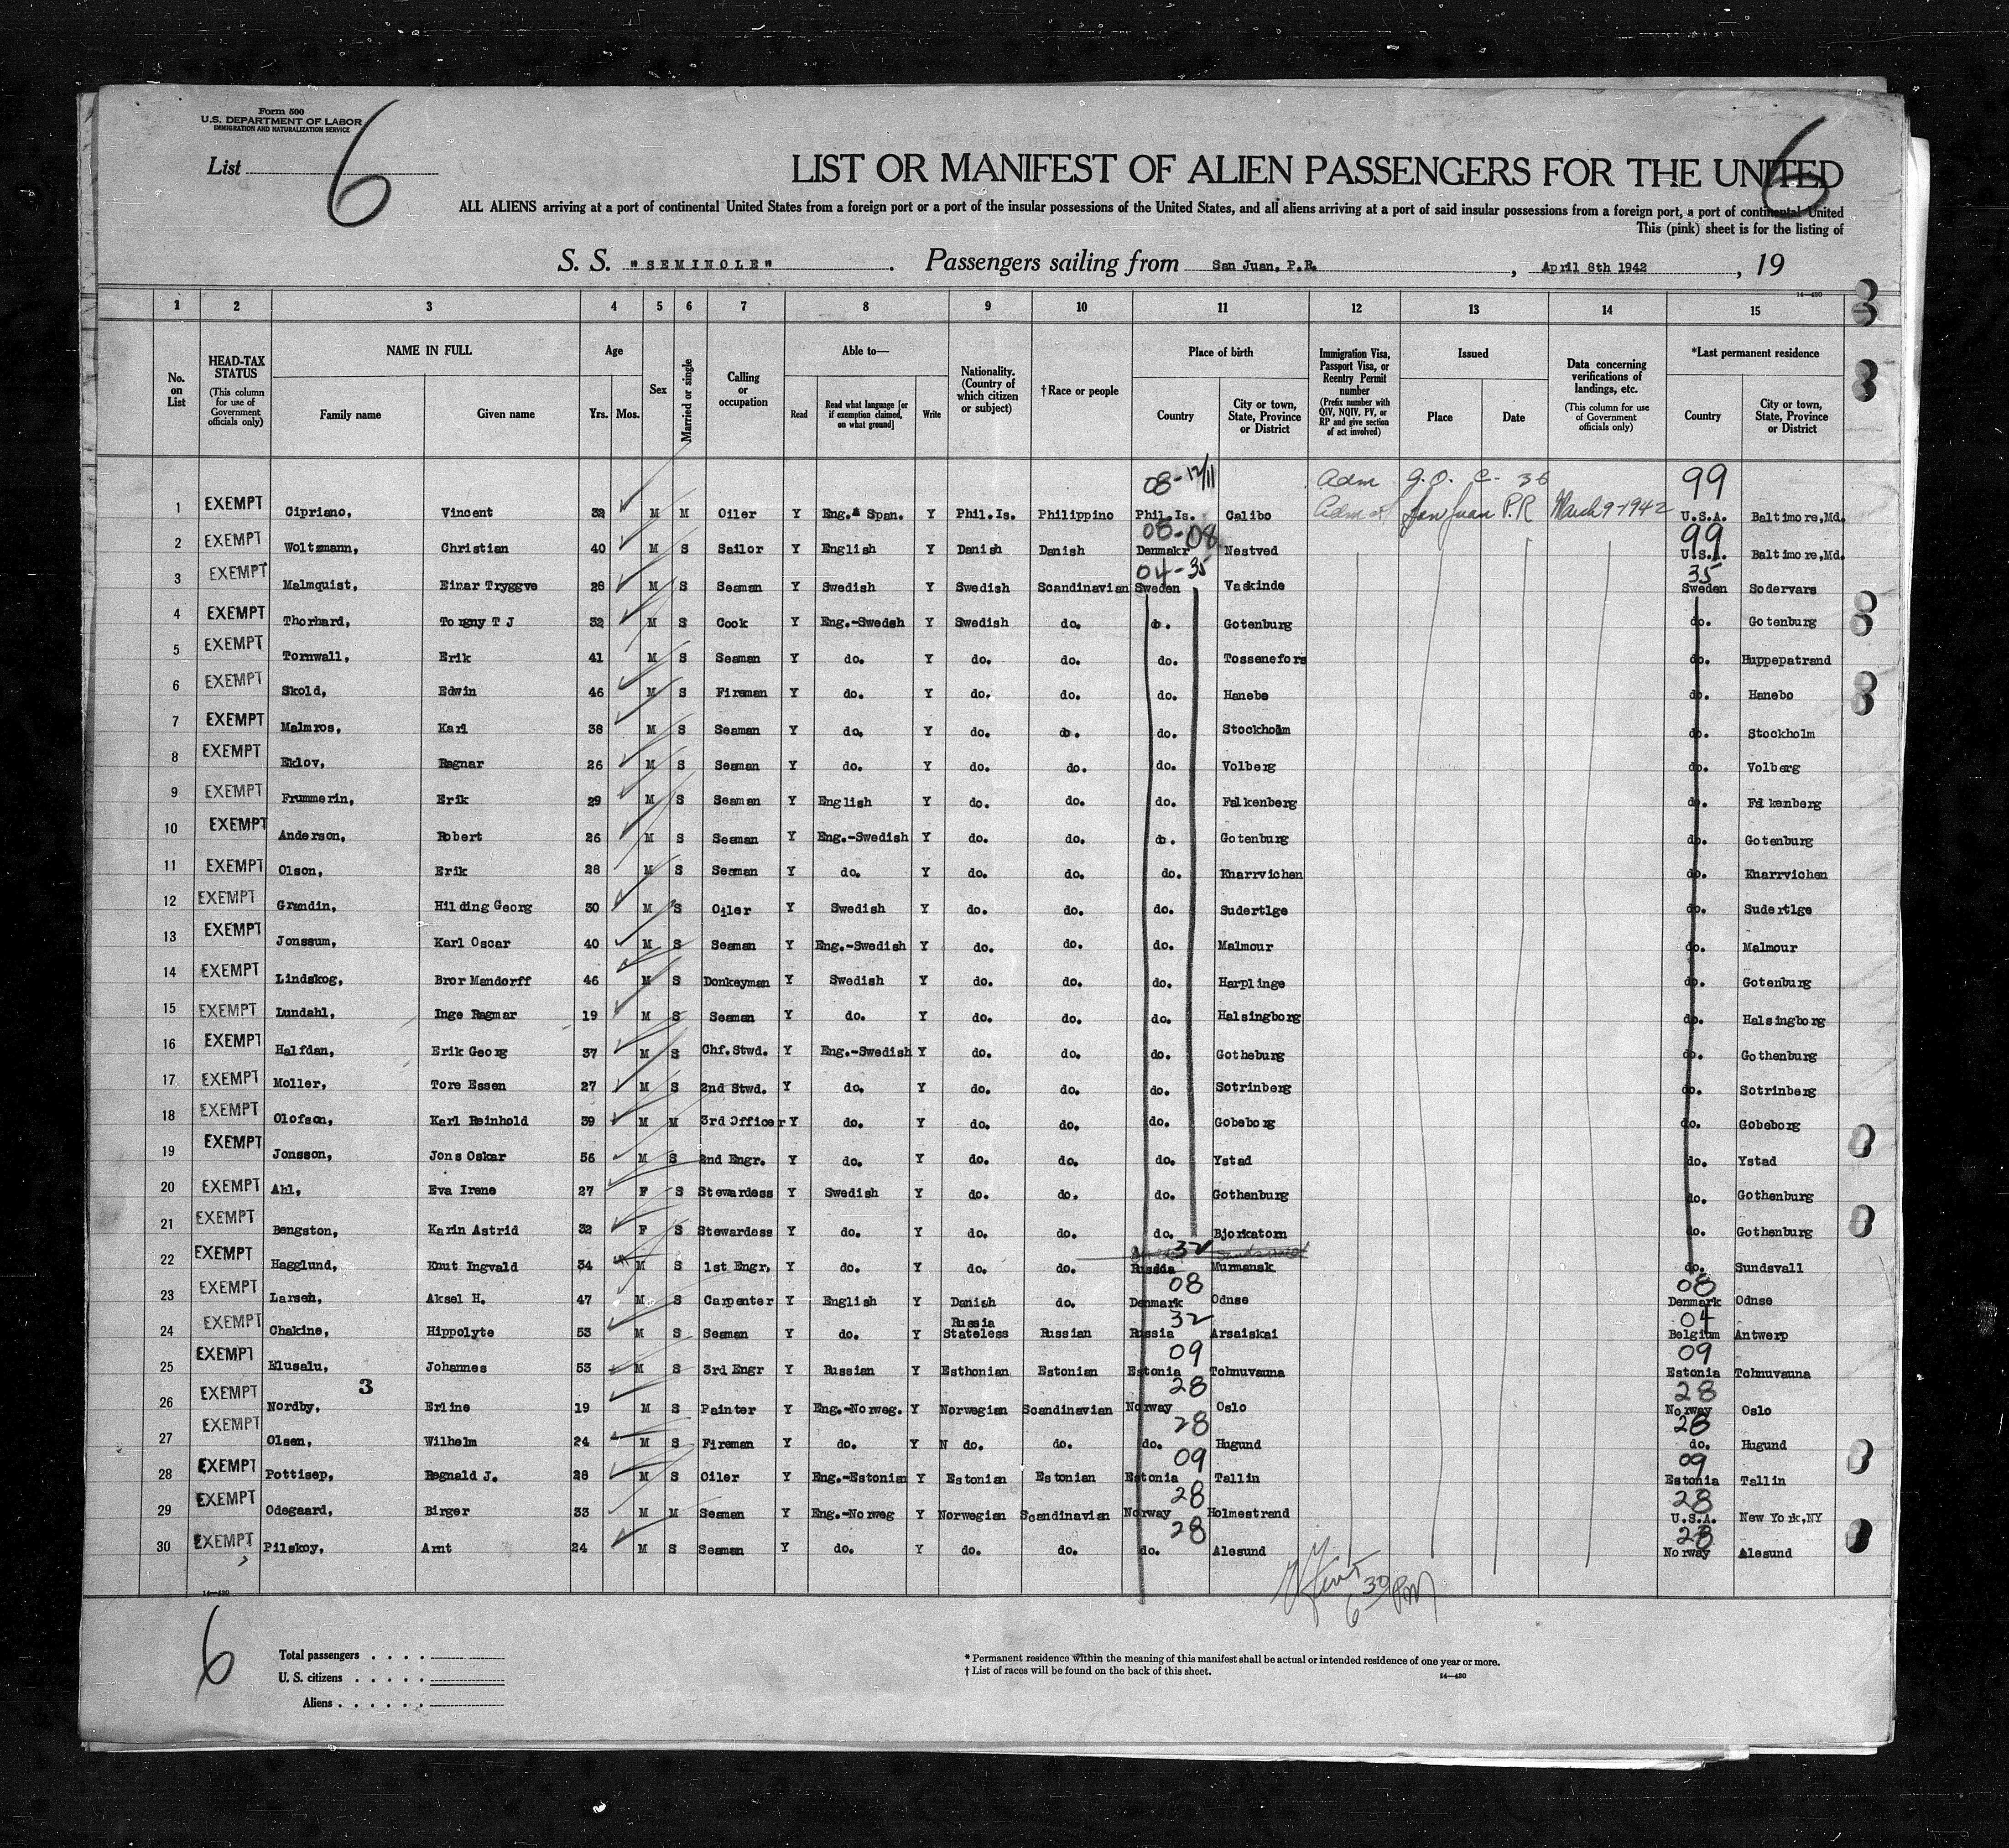 Form 500
U.S. DEPARTMENT OF LABOR
IMMIGRATION AND NATURALIZATION SERVICE
List 6
6
LIST OR MANIFEST OF ALIEN PASSENGERS FOR THE UNITED
ALL ALIENS arriving at a port of continental United States from a foreign port or a port of the insular possessions of the United States, and all aliens arriving at a port of said insular possessions from a foreign port, a port of continental United
This (pink) sheet is for the listing of
S. S. "SEMINOLE". Passengers sailing from San Juan, P.R., April 8th 1942, 19
14—420
1 2 3 4 5 6 7 8 9 10 11 12 13 14 15
No. on List
HEAD-TAX STATUS (This column for use of Government officials only)
NAME IN FULL Family name Given name
Age Yrs. Mos.
Sex
Married or single
Calling or occupation
Able to— Read Read what language [or if exemption claimed, on what ground] Write
Nationality. (Country of which citizen or subject)
†Race or people
Place of birth Country City or town, State, Province or District
Immigration Visa, Passport Visa, or Reentry Permit number (Prefix number with QIV, NQIV, PV, or RP and give section of act involved)
Issued Place Date
Data concerning verifications of landings, etc. (This column for use of Government officials only)
*Last permanent residence Country City or town, State, Province or District
08-12/11 Adm G.O. C- 36 99
1 EXEMPT Cipriano, Vincent 32 M M Oiler Y Eng.& Span. Y Phil.Is. Philippino Phil.Is. Calibo San Juan P.R March 9-1942 U.S.A. Baltimore,Md.
08-08 99
2 EXEMPT Woltzmann, Christian 40 M S Sailor Y English Y Danish Danish Denmakr Nestved U.S.A. Baltimore,Md.
04-35 35
3 EXEMPT Malmquist, Einar Tryggve 28 M S Seaman Y Swedish Y Swedish Scandinavian Sweden Vaskinde Sweden Sodervars
4 EXEMPT Thorhard, Torgny T J 32 M S Cook Y Eng.-Swedsh Y Swedish do. do. Gotenburg do. Gotenburg
5 EXEMPT Tornwall, Erik 41 M S Seaman Y do. Y do. do. do. Tossenefors do. Huppepatrand
6 EXEMPT Skold, Edwin 46 M S Fireman Y do. Y do. do. do. Hanebe do. Hanebo
7 EXEMPT Malmros, Karl 38 M S Seaman Y do. Y do. do. do. Stockholm do. Stockholm
8 EXEMPT Eklov, Ragnar 26 M S Seaman Y do. Y do. do. do. Volberg do. Volberg
9 EXEMPT Frummerin, Erik 29 M S Seaman Y English Y do. do. do. Falkenberg do. Falkenberg
10 EXEMPT Anderson, Robert 26 M S Seaman Y Eng.-Swedish Y do. do. do. Gotenburg do. Gotenburg
11 EXEMPT Olson, Erik 28 M S Seaman Y do. Y do. do. do. Knarrvichen do. Knarrvichen
12 EXEMPT Grandin, Hilding Georg 30 M S Oiler Y Swedish Y do. do. do. Sudertlge do. Sudertlge
13 EXEMPT Jonssum, Karl Oscar 40 M S Seaman Y Eng.-Swedish Y do. do. do. Malmour do. Malmour
14 EXEMPT Lindskog, Bror Mandorff 46 M S Donkeyman Y Swedish Y do. do. do. Harplinge do. Gotenburg
15 EXEMPT Lundahl, Inge Ragmar 19 M S Seaman Y do. Y do. do. do. Halsingborg do. Halsingborg
16 EXEMPT Halfdan, Erik Georg 37 M S Chf.Stwd. Y Eng.-Swedish Y do. do. do. Gotheburg do. Gothenburg
17 EXEMPT Moller, Tore Essen 27 M S 2nd Stwd. Y do. Y do. do. do. Sotrinberg do. Sotrinberg
18 EXEMPT Olofson, Karl Reinhold 39 M M 3rd Officer Y do. Y do. do. do. Gobeborg do. Gobeborg
19 EXEMPT Jonsson, Jons Oskar 56 M S 2nd Engr. Y do. Y do. do. do. Ystad do. Ystad
20 EXEMPT Ahl, Eva Irene 27 F S Stewardess Y Swedish Y do. do. do. Gothenburg do. Gothenburg
21 EXEMPT Bengston, Karin Astrid 32 F S Stewardess Y do. Y do. do. do. Bjorkatorn do. Gothenburg
32
22 EXEMPT Hagglund, Knut Ingvald 34 M S 1st Engr. Y do. Y do. do. Russia Murmansk do. Sundsvall
08 08
23 EXEMPT Larseh, Aksel H. 47 M S Carpenter Y English Y Danish do. Denmark Odnse Denmark Odnse
Russia 32 04
24 EXEMPT Chakine, Hippolyte 53 M S Seaman Y do. Y Stateless Russian Russia Arsaiskai Belgium Antwerp
09 09
25 EXEMPT Elusalu, Johannes 53 M S 3rd Engr Y Russian Y Esthonian Estonian Estonia Tohnuvauna Estonia Tohnuvauna
3 28 28
26 EXEMPT Nordby, Erline 19 M S Painter Y Eng.-Norweg. Y Norwegian Scandinavian Norway Oslo Norway Oslo
28 28
27 EXEMPT Olsen, Wilhelm 24 M S Fireman Y do. Y N do. do. do. Hugund do. Hugund
09 09
28 EXEMPT Pottisep, Regnald J. 28 M S Oiler Y Eng.-Estonian Y Estonian Estonian Estonia Tallin Estonia Tallin
28 28
29 EXEMPT Odegaard, Birger 33 M M Seaman Y Eng.-Norweg Y Norwegian Scandinavian Norway Holmestrand U.S.A. New York,NY
28 28
30 EXEMPT Pilskoy, Arnt 24 M S Seaman Y do. Y do. do. do. Alesund Norway Alesund
6 30 PM
14—420
6
Total passengers . . . .
U. S. citizens . . . . .
Aliens . . . . . .
* Permanent residence within the meaning of this manifest shall be actual or intended residence of one year or more.
† List of races will be found on the back of this sheet.
14—420